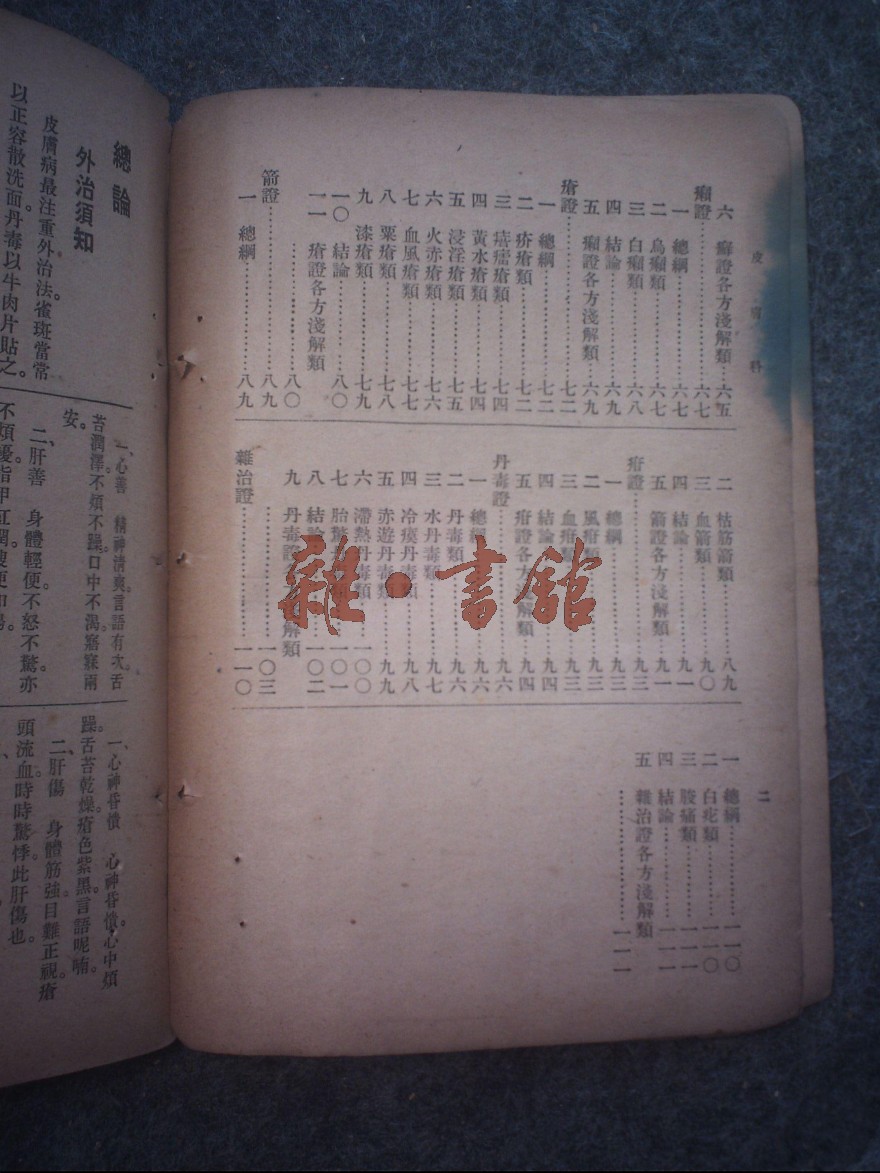 皮膚科
六 癬證各方淺解類……六五
癩證……六七
一 總綱……六七
二 烏癩類……六七
三 白癩類……六八
四 結論……六九
五 癩證各方淺解類……六九
瘡證……七二
一 總綱……七二
二 疥瘡類……七二
三 㾦㿔類……七四
四 黃水瘡類……七四
五 浸淫瘡類……七五
六 火赤瘡類……七六
七 血風瘡類……七七
八 粟瘡類……七七
九 漆瘡類……七九
一〇 結論……八〇
一一 瘡證各方淺解類
……八〇
箭證……八九
一 總綱……八九
二 枯筋箭類……八九
三 血箭類……九〇
四 結論……九一
五 箭證各方淺解類……九一
疳證……九三
一 總綱……九三
二 風疳類……九三
三 血疳類……九三
四 結論……九四
五 疳證各方淺解類……九四
丹毒證……九六
一 總綱……九六
二 丹毒類……九六
三 水丹毒類……九七
四 冷瘼丹毒類……九八
五 赤遊丹毒類……九九
六 滯熱丹毒類……一〇〇
七 胎驚……一〇一
八 結論……一〇二
九 丹毒證各方淺解類
……一〇三
雜治證……一一〇
二
一 總綱……一一〇
二 白疕類……一一〇
三 胺痛類……一一一
四 結論……一一一
五 雜治證各方淺解類
……一一一
總論
外治須知
皮膚病最注重外治法。雀斑當常
以正容散洗面。丹毒以牛肉片貼之。
一、心善 精神清爽。言語有次。舌
苔潤澤。不煩不躁。口中不渴。寤寐兩
安。
二、肝善 身體輕便。不怒不驚。亦
一、心神昏憒 心神昏憒。心中煩
躁。舌苔乾燥。瘡色紫黑。言語呢喃。
二、肝傷 身體筋強。目難正視。瘡
頭流血。時時驚悸。此肝傷也。
雜·書館